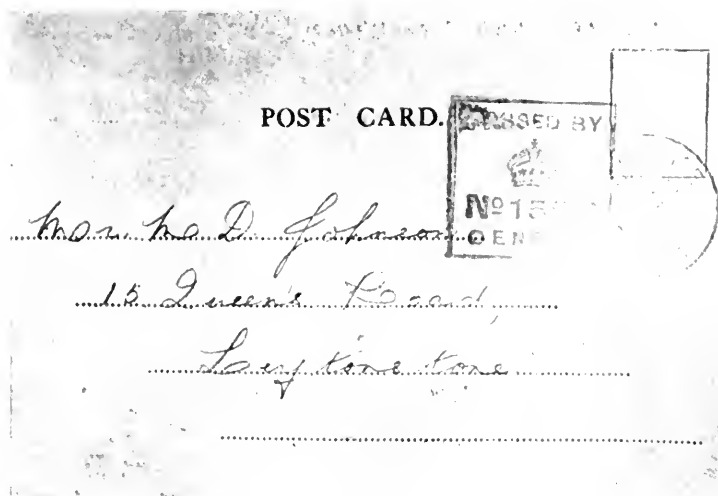 POST CARD.
PASSED BY
No 15
CEN
D. Johnson
15 Queen's Road,
Leytonstone